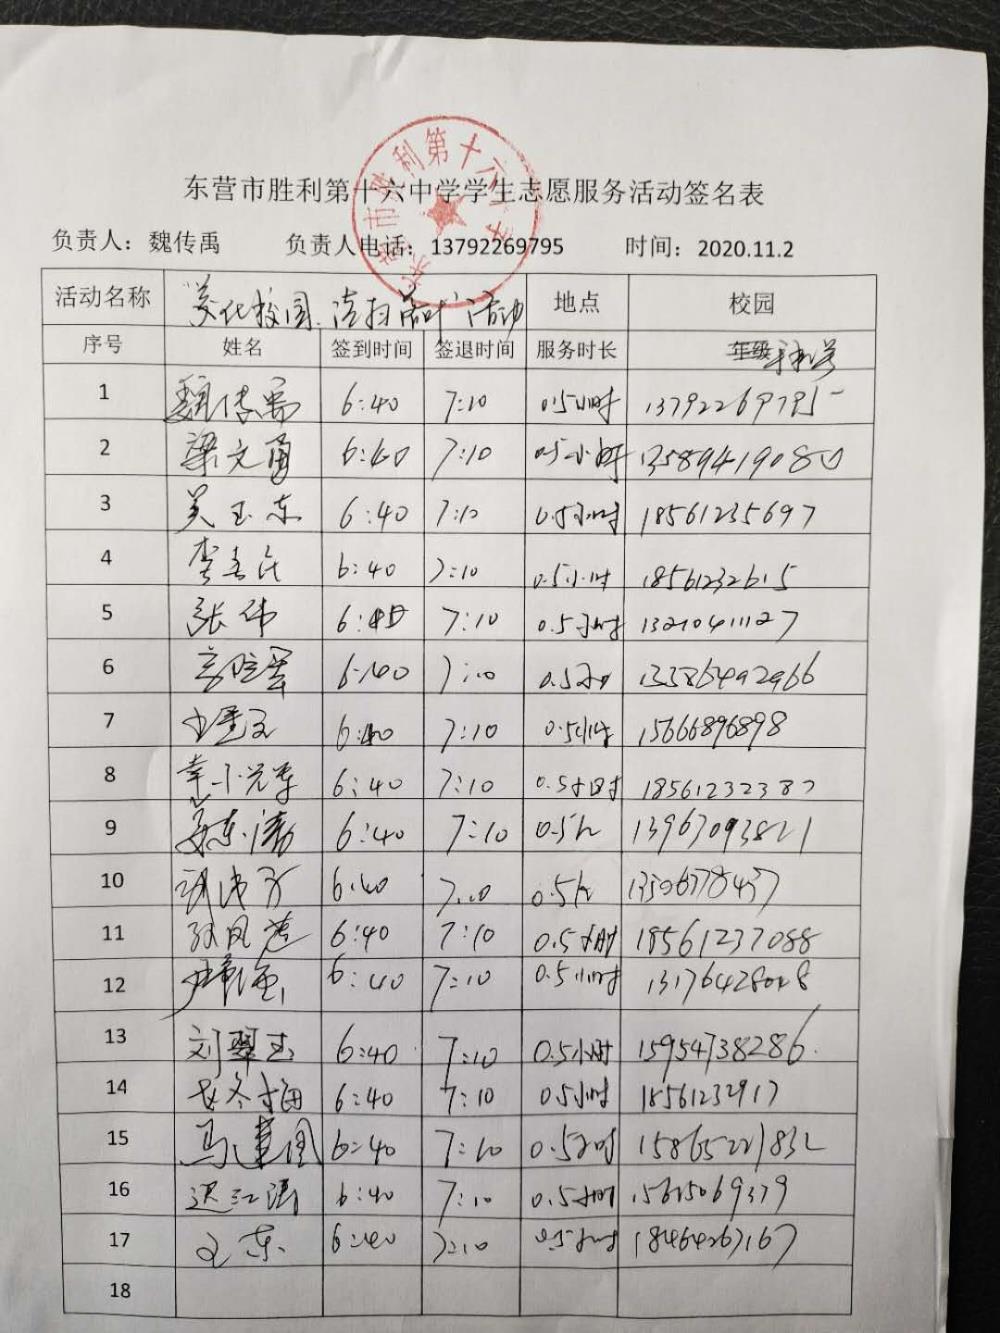 东营市胜利第十六中学
东营市胜利第十六中学学生志愿服务活动签名表
负责人：魏传禹 负责人电话：13792269795 时间：2020.11.2
活动名称 "美化校园、清扫落叶"活动 地点 校园
序号 姓名 签到时间 签退时间 服务时长 年级 手机号
1 魏传禹 6:40 7:10 0.5小时 13792269795
2 梁文勇 6:40 7:10 0.5小时 13589419080
3 吴玉东 6:40 7:10 0.5小时 18561235697
4 6:40 7:10 0.5小时 18561232615
5 张伟 6:40 7:10 0.5小时 13210411127
6 6:40 7:10 0.5小时 13586492966
7 6:40 7:10 0.5小时 15666896898
8 6:40 7:10 0.5小时 18561232382
9 6:40 7:10 0.5h 13963093821
10 6:40 7:10 0.5h
11 6:40 7:10 0.5小时 18561237088
12 6:40 7:10 0.5小时 13176428028
13 刘翠玉 6:40 7:10 0.5小时 15954738286
14 6:40 7:10 0.5小时 18561232917
15 马建国 6:40 7:10 0.5小时 15865221832
16 迟红涛 6:40 7:10 0.5小时 15615069379
17 王东 6:40 7:10 0.5小时 18464267167
18